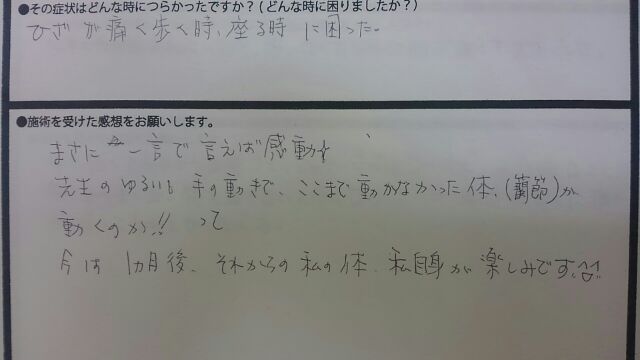 ●その症状はどんな時につらかったですか？(どんな時に困りましたか？)
ひざが痛く歩く時、座る時に困った。
●施術を受けた感想をお願いします。
まさに一言で言えば感動
先生のゆるい手の動きで、ここまで動かなかった体、(関節)が
動くのか!! って
今は1ヵ月後、それからの私の体、私自身が楽しみです。^^